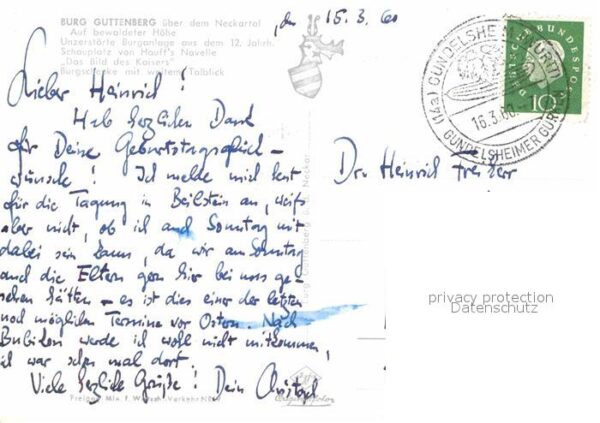 BURG GUTTENBERG über dem Neckartal
Auf bewaldeter Höhe
Unzerstörte Burganlage aus dem 12. Jahrh.
Schauplatz von Hauff's Novelle
„Das Bild des Kaisers"
Burgschenke mit weitem Talblick
, den 15. 3. 60
Lieber Heinrich!
Hab herzlichen Dank
für Deine Geburtstagsglück-
wünsche! Ich melde mich heut
für die Tagung in Beilstein an, weiß
aber nicht, ob ich auch Sonntag mit
dabei sein kann, da wir am Sonntag
auch die Eltern gern hier bei uns ge-
sehen hätten – es ist dies einer der letzten
noch möglichen Termine vor Ostern. Nach
Bubikon werde ich wohl nicht mitkommen,
ich war schon mal dort.
Viele herzliche Grüße! Dein Christoph
Dr. Heinrich
(14a) GUNDELSHEIM (WÜRTT)
16.3.60
GUNDELSHEIMER
DEUTSCHE BUNDESPOST
10
privacy protection
Datenschutz